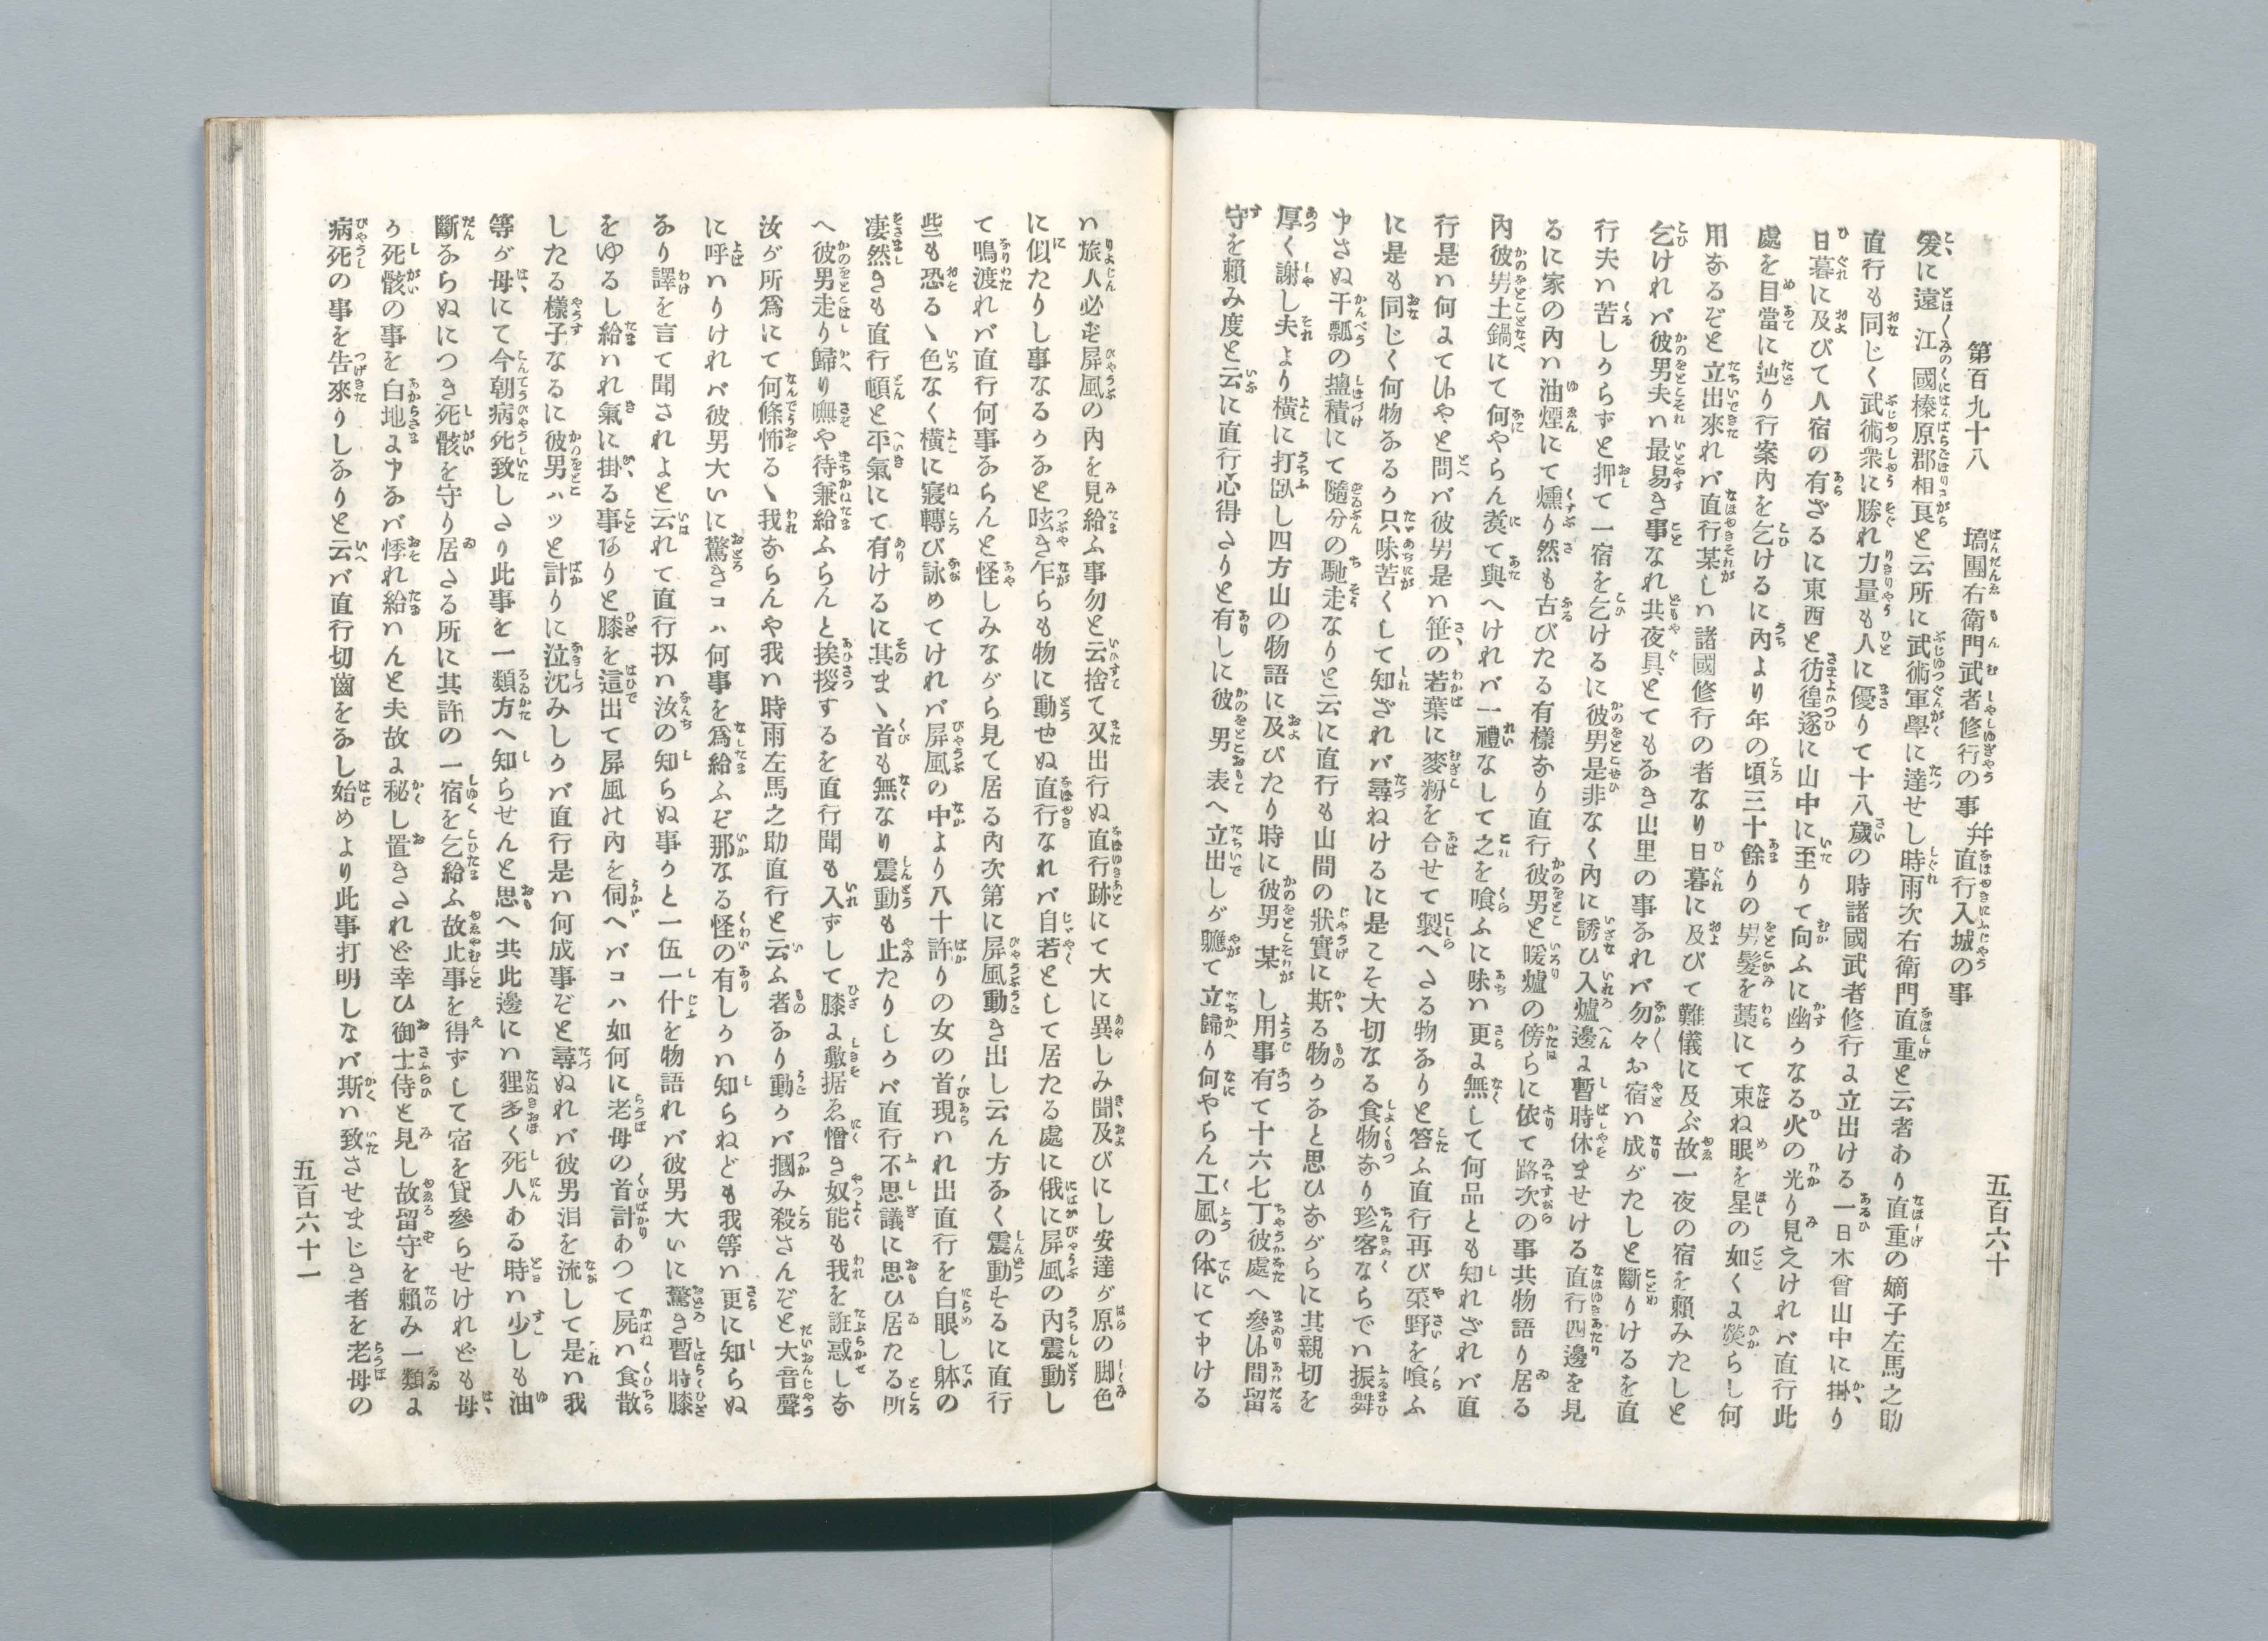 第百九十八　塙團右衛門武者修行の事　幷直行入城の事
五百六十
爰に遠江國榛原郡相良と云所に武術軍學に達せし時雨次右衛門直重と云者あり直重の嫡子左馬之助
直行も同じく武術衆に勝れ力量も人に優りて十八歳の時諸國武者修行に立出ける一日木曾山中に掛り
日暮に及びて人宿の有ざるに東西と彷徨遂に山中に至りて向ふに幽かなる火の光り見えければ直行此
處を目當に辿り行案内を乞けるに内より年の頃三十餘りの男髮を藁にて束ね眼を星の如くに熒らし何
用なるぞと立出來れば直行某しは諸國修行の者なり日暮に及びて難儀に及ぶ故一夜の宿を賴みたしと
乞ければ彼男夫は最易き事なれ共夜具とてもなき山里の事なれば勿々お宿は成がたしと斷りけるを直
行夫は苦しからずと押て一宿を乞けるに彼男是非なく内に誘ひ入爐邊に暫時休ませける直行四邊を見
るに家の内は油煙にて燻り然も古びたる有樣なり直行彼男と暖爐の傍らに依て路次の事共物語り居る
内彼男土鍋にて何やらん煑て與へければ一禮なして之を喰ふに味は更に無して何品とも知れざれば直
行是は何にて候やと問ば彼男是は笹の若葉に麥粉を合せて製へたる物なりと答ふ直行再び菜野を喰ふ
に是も同じく何物なるか只味苦くして知ざれば尋ねけるに是こそ大切なる食物なり珍客ならでは振舞
申さぬ干瓢の壗積にて隨分の馳走なりと云に直行も山間の狀實に斯る物かなと思ひながらに其親切を
厚く謝し夫より橫に打臥し四方山の物語に及びたり時に彼男某し用事有て十六七丁彼處へ參り候間留
守を賴み度と云に直行心得たりと有しに彼男表へ立出しが軈て立歸り何やらん工風の体にて申ける
は旅人必ず屏風の内を見給ふ事勿と云捨て又出行ぬ直行跡にて大に異しみ聞及びにし安達が原の脚色
に似たりし事なるかなと呟き乍らも物に動せぬ直行なれば自若として居たる處に俄に屏風の内震動し
て鳴渡れば直行何事ならんと怪しみながら見て居る内次第に屏風動き出し云ん方なく震動するに直行
些も恐るゝ色なく橫に寢轉び詠めてければ屏風の中より八十許りの女の首現はれ出直行を白眼し躰の
凄然きも直行頓と平氣にて有けるに其まゝ首も無なり震動も止たりしかば直行不思議に思ひ居たる所
へ彼男走り歸り嘸や待兼給ふらんと挨拶するを直行聞も入ずして膝に敷据ゑ憎き奴能も我を誑惑しな
汝が所爲にて何條怖るゝ我ならんや我は時雨左馬之助直行と云ふ者なり動かば摑み殺さんぞと大音聲
に呼はりければ彼男大いに驚きコハ何事を爲給ふぞ那なる怪の有しかは知らねども我等は更に知らぬ
なり譯を言て聞されよと云れて直行扨は汝の知らぬ事かと一伍一什を物語れば彼男大いに驚き暫時膝
をゆるし給はれ氣に掛る事ありと膝を這出て屏風の内を伺へばコハ如何に老母の首計あつて屍は食散
したる樣子なるに彼男ハッと計りに泣沈みしかば直行是は何成事ぞと尋ぬれば彼男泪を流して是は我
等が母にて今朝病死致したり此事を一類方へ知らせんと思へ共此邊には狸多く死人ある時は少しも油
斷ならぬにつき死骸を守り居たる所に其許の一宿を乞給ふ故止事を得ずして宿を貸參らせけれども母
か死骸の事を白地に申なば悸れ給はんと夫故に秘し置きされど幸ひ御士侍と見し故留守を賴み一類に
病死の事を告來りしなりと云へば直行切齒をなし始めより此事打明しなば斯は致させまじき者を老母の
五百六十一